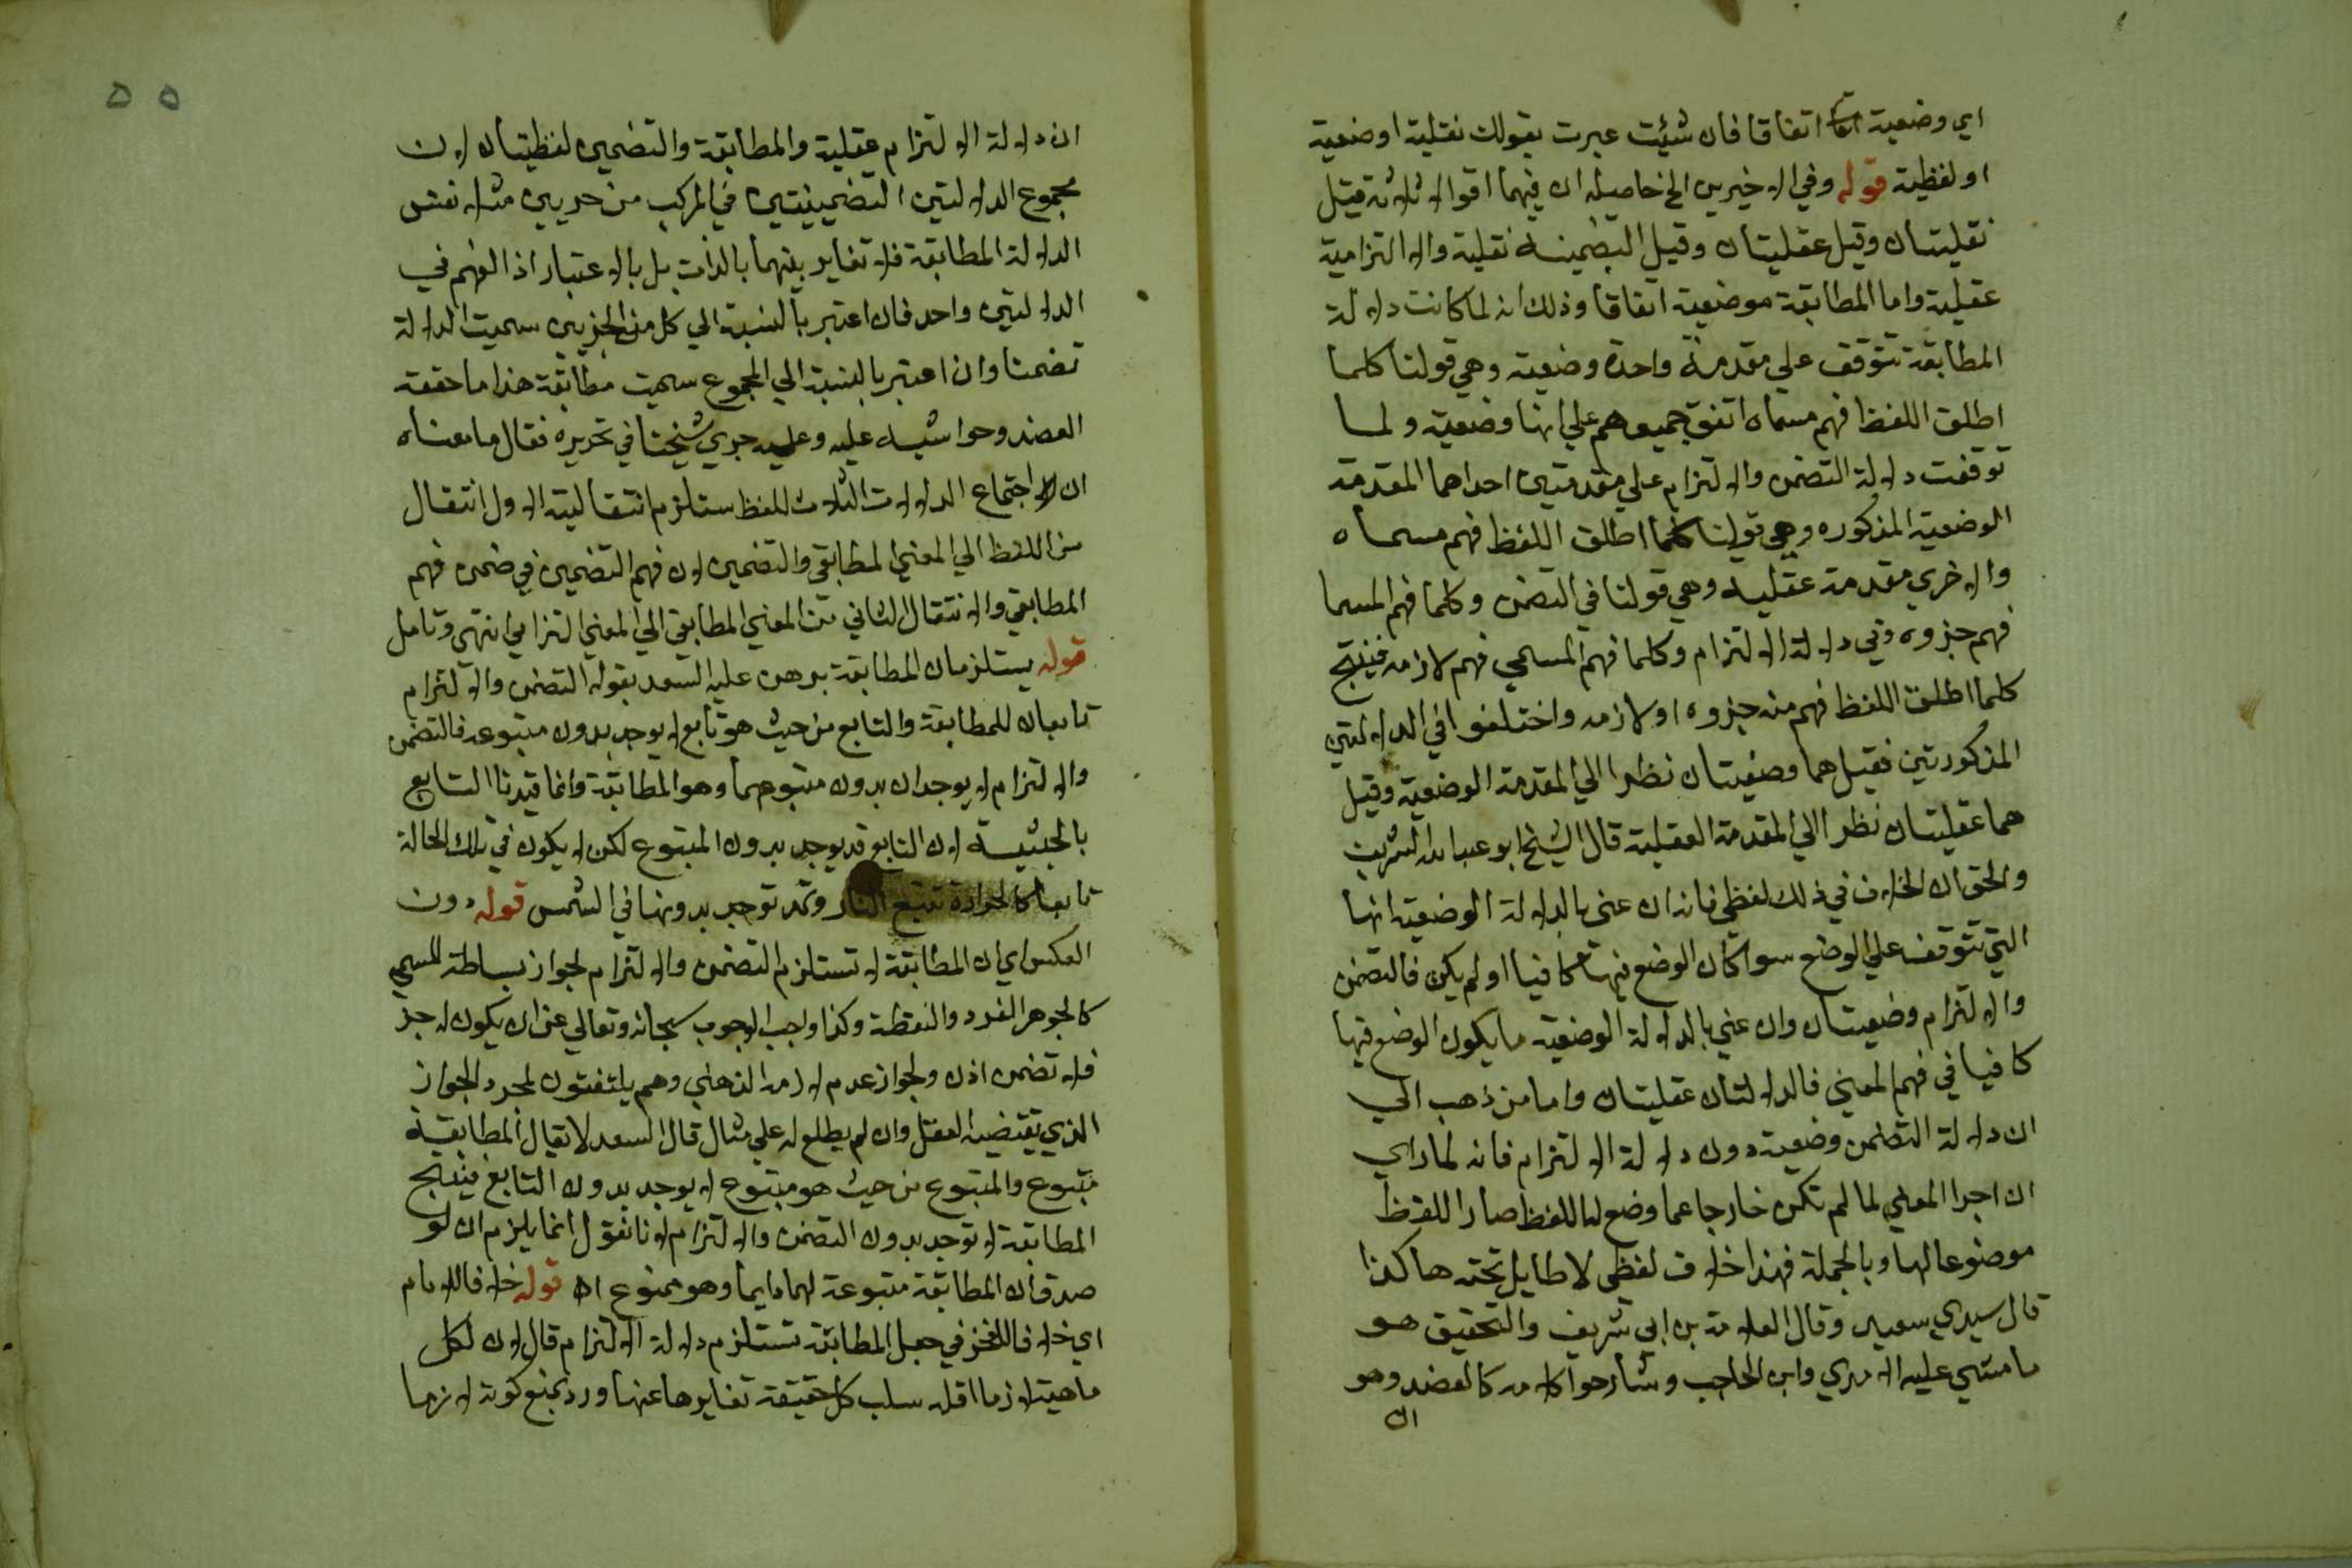 اي وضعية اتفاقا فان شئت عبرت بقولك نقلية اوضعية
اولفظية قوله وفي الاخيرين الخ حاصله ان فيهما اقوالا ثلاثة قيل
نقليتان وقيل عقليتان وقيل التضمنية نقلية والالتزامية
عقلية واما المطابقة موضعية اتفاقا وذلك انه لما كانت دلالة
المطابقة تتوقف علي مقدمة واحدة وضعية وهي قولنا كلما
اطلق اللفظ فهم مسماه اتفق جميعهم علي انها وضعية ولما
توقفت دلالة التضمن والالتزام علي مقدمتين احداهما المقدمة
الوضعية المذكوره وهي قولنا كلما اطلق اللفظ فهم مسماه
والاخري مقدمة عقليه وهي قولنا في التضمن وكلما فهم المسما
فهم جزوه وفي دلالة الالتزام وكلما فهم المسمي فهم لازمه فينتج
كلما اطلق اللفظ فهم منه جزوه او لازمه واختلفوا في الدلالتين
المذكورتين فقيل هما وضعيتان نظرا الي المقدمة الوضعية وقيل
هما عقليتان نظرا الي المقدمة العقلية قال الشيخ ابو عبد الله الشريف
والحق ان الخلاف في ذلك لفظي فانه ان عنى بالدلالة الوضعية انها
التي تتوقف علي الوضع سوا كان الوضع فيها كافيا او لم يكن فالتضمن
والالتزام وضعيتان وان عني بالدلالة الوضعية ما يكون الوضع فيها
كافيا في فهم المعني فالدلالتان عقليتان واما من ذهب الي
ان دلالة التضمن وضعية دون دلالة الالتزام فانه لما راي
ان اجزا المعني لما لم تكن خارجا عما وضع له اللفظ صار اللفظ
موضوعا لها وبالجملة فهذا خلاف لفظي لا طايل تحته هاكذا
قال سيدي سعيد وقال العلامة بن ابي شريف والتحقيق هو
ما مشي عليه الامدي وابن الحاجب وشارحوا كلامه كالعضد وهو
ان
ان دلالة الالتزام عقلية والمطابقة والتضمين لفظيتان لان
مجموع الدلالتين التضمينيتين في المركب من جزيين مثلا نفس
الدلالة المطابقة فلا تغاير بينهما بالذات بل بالاعتبار اذ الفهم في
الدلالتين واحد فان اعتبر بالنسبة الي كل من الجزيين سميت الدلالة
تضمنا وان اعتبر بالنسبة الي المجموع سميت مطابقة هذا ما حققه
العضد وحواشيه عليه وعليه جري شيخنا في تحريره فقال ما معناه
ان اجتماع الدلالات الثلاث للفظ ستلزم انتقالية الاول انتقال
من اللفظ الي المعني المطابقي والتضمين لان فهم التضمين في ضمن فهم
المطابقي والانتقال الثاني من المعني المطابقي الي المعني التزامي انتهى وتامل
قوله يستلزمان المطابقة برهن عليه السعد بقوله التضمن والالتزام
تابعان للمطابقة والتابع من حيث هو تابع لا يوجد بدون متبوعه فالتضمن
والالتزام لا يوجدان بدون متبوعهما وهو المطابقة وانما قيدنا التابع
بالحيثية لان التابع قد يوجد بدون المتبوع لكن لا يكون في تلك الحالة
تابعا كالحرارة تتبع النار وقد توجد بدونها في الشمس قوله دون
العكس اي ان المطابقة لا تستلزم التضمن والالتزام لجواز بساطة المسمي
كالجوهر الفرد والنقطة وكذا واجب الوجوب سبحانه وتعالي عن ان يكون له جز
فلا تضمن اذن ولجواز عدم لازمه الذهني وهم يلتفتون لمجرد الجواز
الذي يقتضيه العقل وان لم يطلع له علي مثال قال السعد لا يقال المطابقة
متبوع والمتبوع من حيث هو متبوع لا يوجد بدون التابع فينتج
المطابقة لا توجد بدون التضمن والالتزام لانا نقول انما يلزم ان لو
صدق ان المطابقة متبوعة لهما دايما وهو ممنوع اه قوله خلافا للامام
اي خلافا للفخر في جعل المطابقة تستلزم دلالة الالتزام قال لان لكل
ماهية لازما اقله سلب كل حقيقة تغايرها عنها ورد بمنع كونه لازما